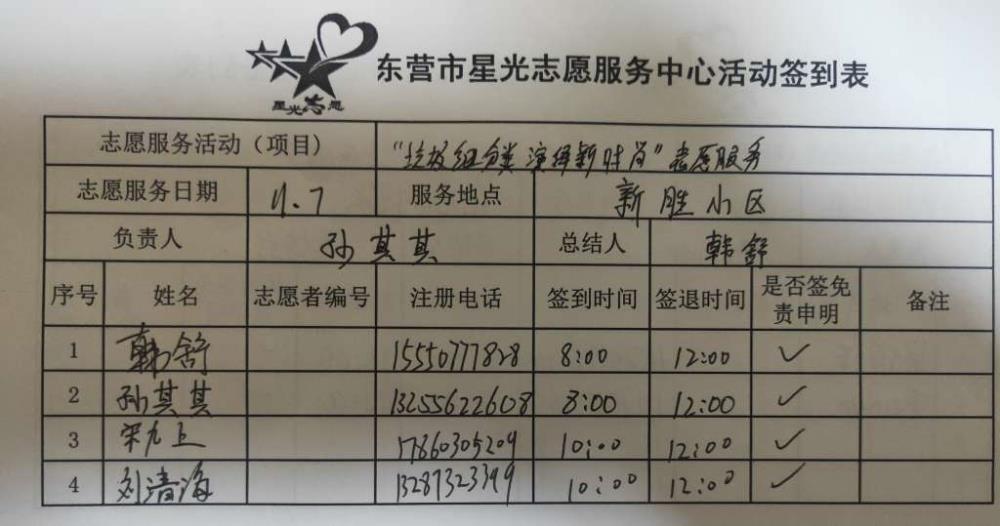 星光志愿
东营市星光志愿服务中心活动签到表
志愿服务活动（项目） “垃圾分类 演绎新时尚”志愿服务
志愿服务日期 11.7 服务地点 新胜小区
负责人 孙其其 总结人 韩舒
序号 姓名 志愿者编号 注册电话 签到时间 签退时间 是否签免责申明 备注
1 韩舒 15550777828 8:00 12:00 ✓
2 孙其其 13255622608 8:00 12:00 ✓
3 宋九上 17860305209 10:00 12:00 ✓
4 刘清海 13287323399 10:00 12:00 ✓